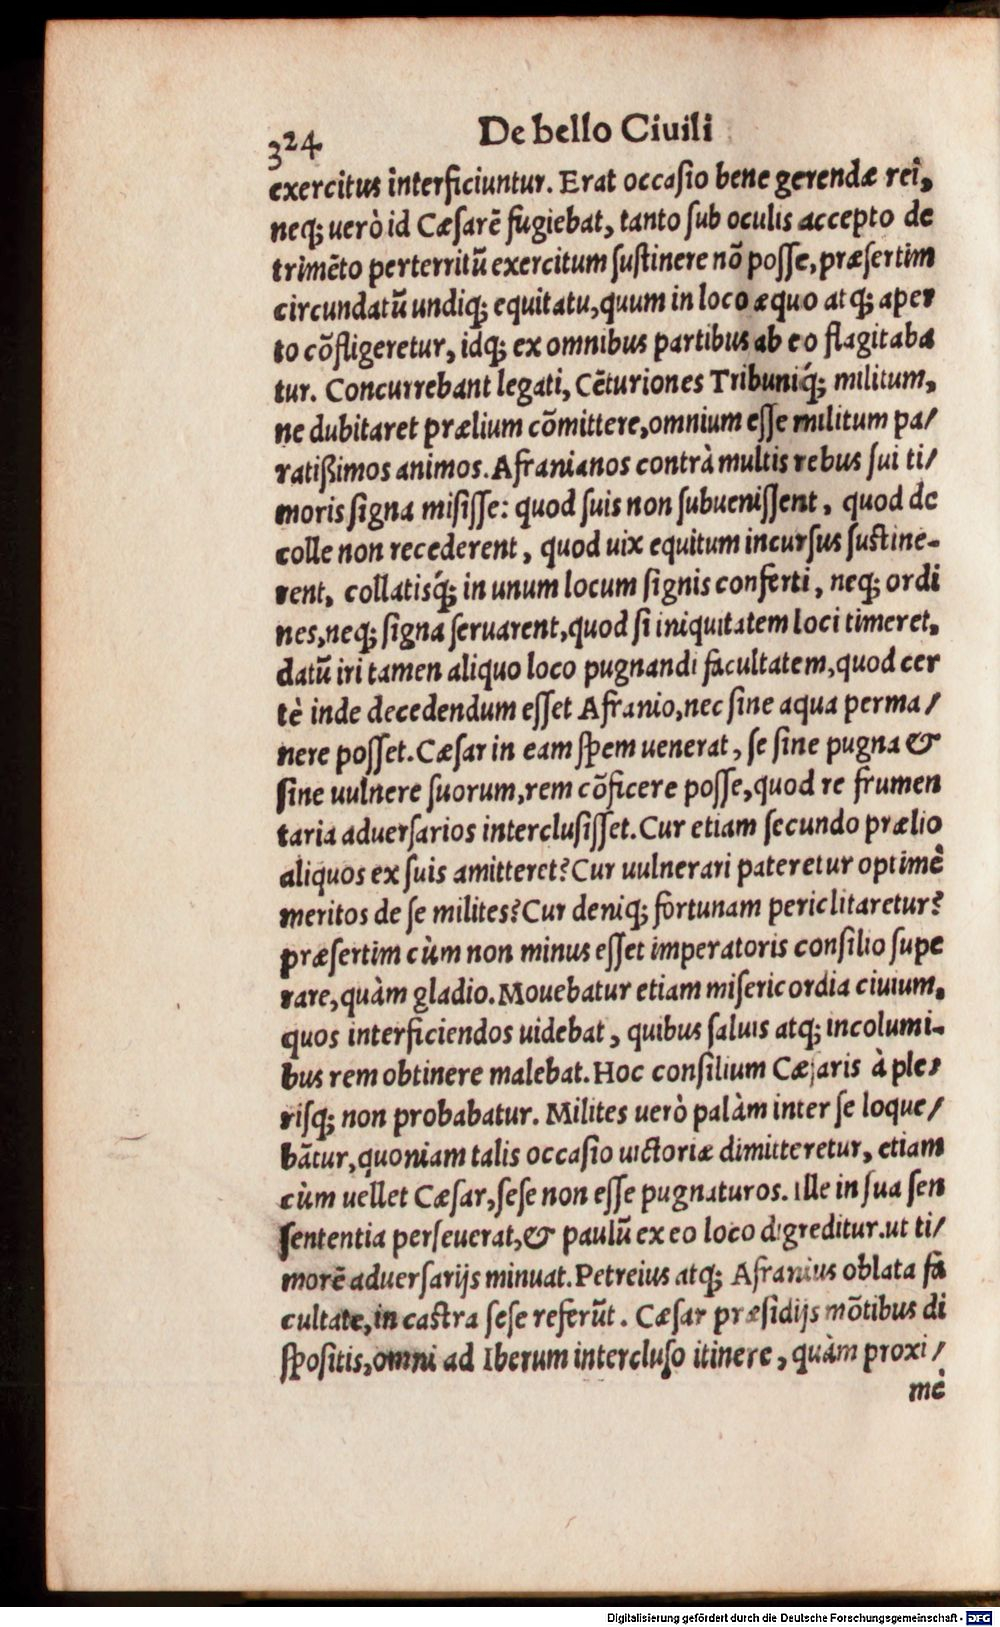 324 De bello Ciuili
exercitus interficiuntur. Erat occaſio bene gerendæ rei,
neq; uerò id Cæſarē fugiebat, tanto ſub oculis accepto de
trimēto perterritū exercitum ſuſtinere nō poſſe, præſertim
circundatū undiq; equitatu, quum in loco æquo atq; aper
to cōfligeretur, idq; ex omnibus partibus ab eo flagitaba
tur. Concurrebant legati, Cēturiones Tribuniq́; militum,
ne dubitaret prælium cōmittere, omnium eſſe militum pa/
ratißimos animos. Afranianos contrà multis rebus ſui ti/
moris ſigna miſiſſe: quod ſuis non ſubueniſſent, quod de
colle non recederent, quod uix equitum incurſus ſuſtine-
rent, collatisq́; in unum locum ſignis conferti, neq; ordi
nes, neq; ſigna ſeruarent, quod ſi iniquitatem loci timeret,
datū iri tamen aliquo loco pugnandi facultatem, quod cer
tè inde decedendum eſſet Afranio, nec ſine aqua perma/
nere poſſet. Cæſar in eam ſpem uenerat, ſe ſine pugna &
ſine uulnere ſuorum, rem cōficere poſſe, quod re frumen
taria aduerſarios intercluſiſſet. Cur etiam ſecundo prælio
aliquos ex ſuis amitteret? Cur uulnerari pateretur optimè
meritos de ſe milites? Cur deniq; fortunam periclitaretur?
præſertim cùm non minus eſſet imperatoris conſilio ſupe
rare, quàm gladio. Mouebatur etiam miſericordia ciuium,
quos interficiendos uidebat, quibus ſaluis atq; incolumi-
bus rem obtinere malebat. Hoc conſilium Cæſaris à ple/
riſq; non probabatur. Milites uerò palàm inter ſe loque/
bātur, quoniam talis occaſio uictoriæ dimitteretur, etiam
cùm uellet Cæſar, ſeſe non eſſe pugnaturos. Ille in ſua ſen
ſententia perſeuerat, & paulū ex eo loco digreditur. ut ti/
morē aduerſarijs minuat. Petreius atq; Afranius oblata fa
cultate, in caſtra ſeſe referūt. Cæſar præſidijs mōtibus di
ſpoſitis, omni ad Iberum intercluſo itinere, quàm proxi/
mè
Digitalisierung gefördert durch die Deutsche Forschungsgemeinschaft - DFG